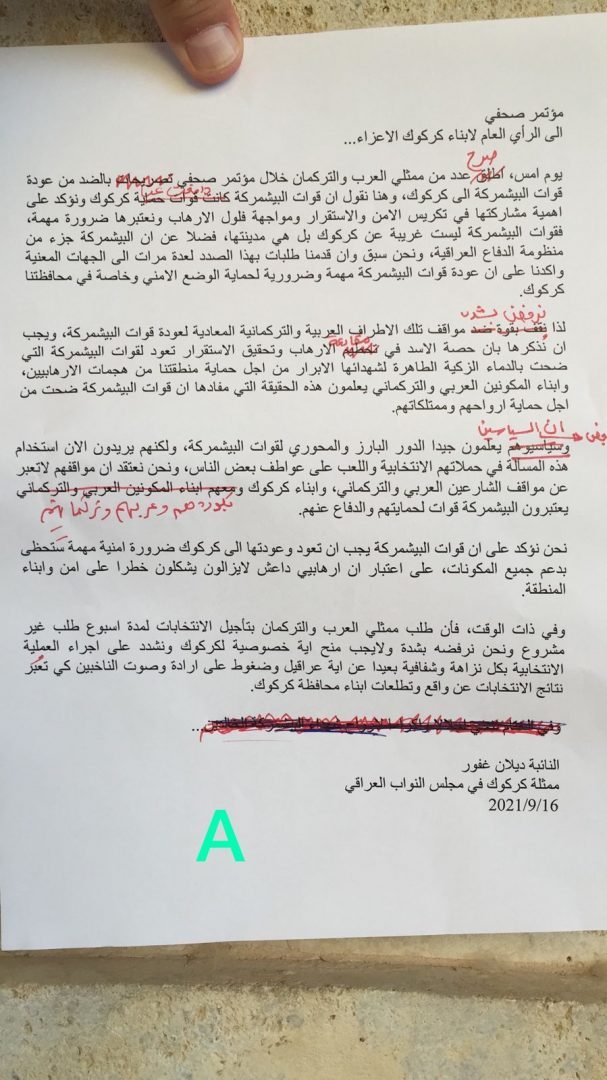 مؤتمر صحفي
الى الرأي العام لابناء كركوك الاعزاء...
صرح
يوم امس، اطلق عدد من ممثلي العرب والتركمان خلال مؤتمر صحفي تصريحات بالضد من عودة
دافعت عن
قوات البيشمركة الى كركوك، وهنا نقول ان قوات البيشمركة كانت قوات حماية كركوك ونؤكد على
اهمية مشاركتها في تكريس الامن والاستقرار ومواجهة فلول الارهاب ونعتبرها ضرورة مهمة،
فقوات البيشمركة ليست غريبة عن كركوك بل هي مدينتها، فضلا عن ان البيشمركة جزء من
منظومة الدفاع العراقية، ونحن سبق وان قدمنا طلبات بهذا الصدد لعدة مرات الى الجهات المعنية
واكدنا على ان عودة قوات البيشمركة مهمة وضرورية لحماية الوضع الامني وخاصة في محافظتنا
كركوك.
نرفض بشدة
لذا نقف بقوة ضد مواقف تلك الاطراف العربية والتركمانية المعادية لعودة قوات البيشمركة، ويجب
مقارعة
ان نُذكرها بان حصة الاسد في تحطيم الارهاب وتحقيق الاستقرار تعود لقوات البيشمركة التي
ضحت بالدماء الزكية الطاهرة لشهدائها الابرار من اجل حماية منطقتنا من هجمات الارهابيين،
وابناء المكونين العربي والتركماني يعلمون هذه الحقيقة التي مفادها ان قوات البيشمركة ضحت من
اجل حماية ارواحهم وممتلكاتهم.
ان السياسين
وسياسيوهم يعلمون جيدا الدور البارز والمحوري لقوات البيشمركة، ولكنهم يريدون الان استخدام
هذه المسألة في حملاتهم الانتخابية واللعب على عواطف بعض الناس، ونحن نعتقد ان مواقفهم لاتعبر
عن مواقف الشارعين العربي والتركماني، وابناء كركوك ومعهم ابناء المكونين العربي والتركماني
يعتبرون البيشمركة قوات لحمايتهم والدفاع عنهم.
بكوردهم وعربهم وتركمانهم
نحن نؤكد على ان قوات البيشمركة يجب ان تعود وعودتها الى كركوك ضرورة امنية مهمة ستَحظى
بدعم جميع المكونات، على اعتبار ان ارهابيي داعش لايزالون يشكلون خطرا على امن وابناء
المنطقة.
وفي ذات الوقت، فأن طلب ممثلي العرب والتركمان بتأجيل الانتخابات لمدة اسبوع طلب غير
مشروع ونحن نرفضه بشدة ولايجب منح اية خصوصية لكركوك ونشدد على اجراء العملية
الانتخابية بكل نزاهة وشفافية بعيدا عن اية عراقيل وضغوط على ارادة وصوت الناخبين كي تعُبر
نتائج الانتخابات عن واقع وتطلعات ابناء محافظة كركوك.
النائبة ديلان غفور
ممثلة كركوك في مجلس النواب العراقي
2021/9/16
A